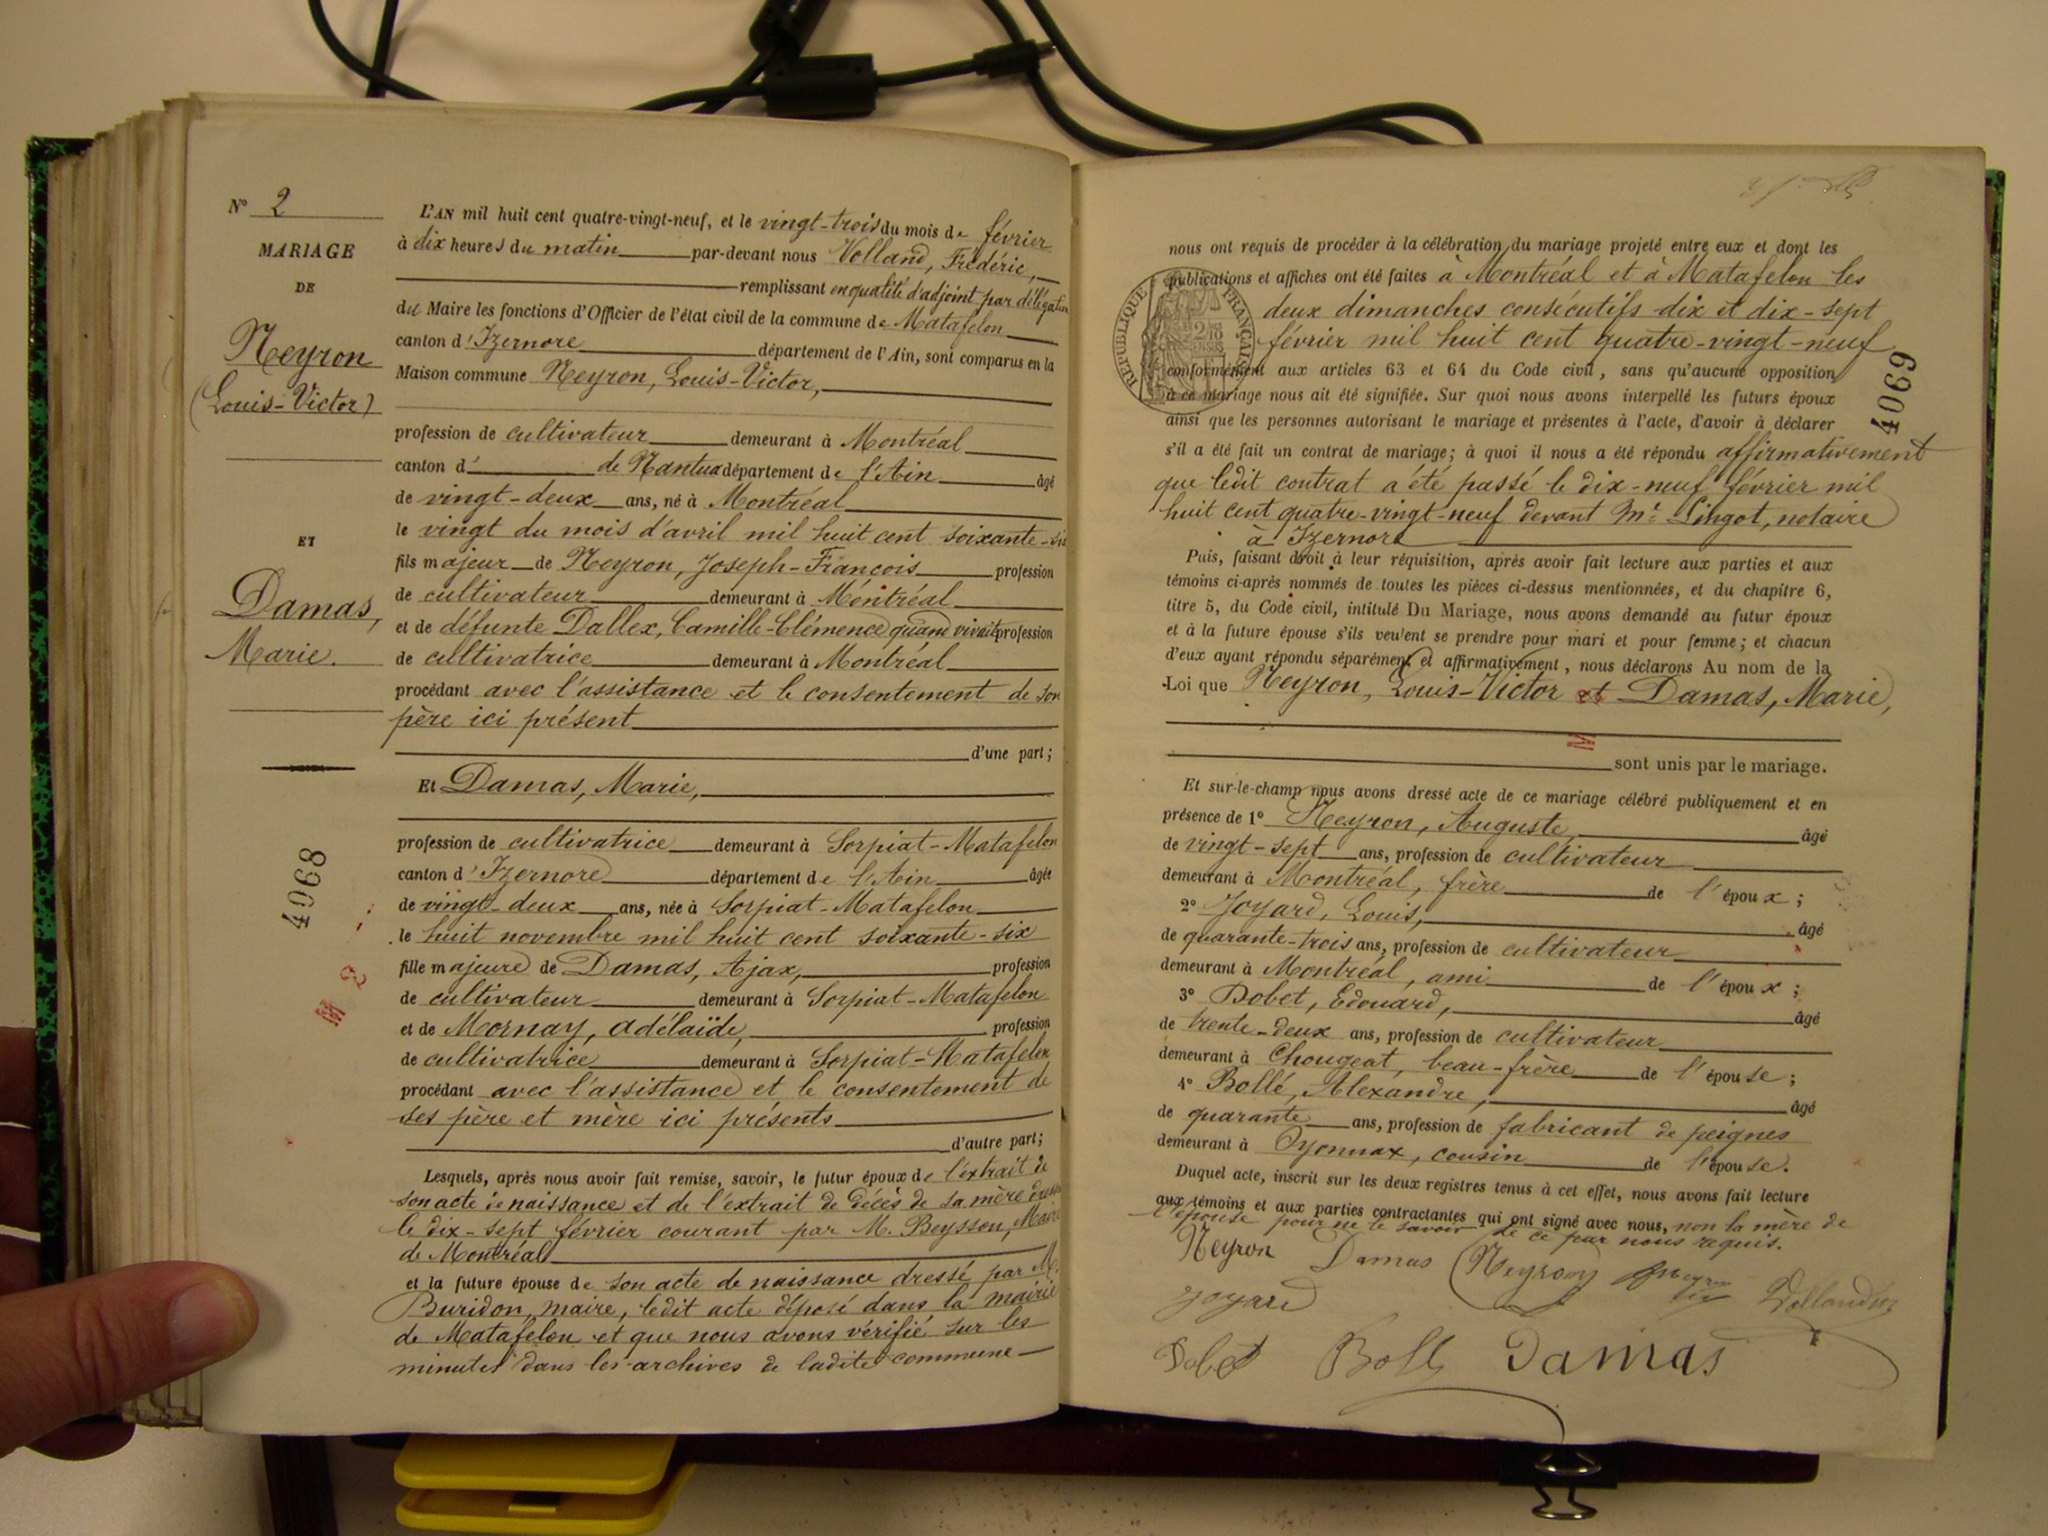 N° 2
MARIAGE
DE
Neyron
(Louis-Victor)
ET
Damas,
Marie.
4068
M 2
L'AN mil huit cent quatre-vingt-neuf, et le vingt-trois du mois de février
à dix heures du matin par-devant nous Volland, Frédéric,
remplissant en qualité d'adjoint par délégation
du Maire les fonctions d'Officier de l'état civil de la commune de Matafelon
canton d'Izernore département de l'Ain, sont comparus en la
Maison commune Neyron, Louis-Victor,
profession de cultivateur demeurant à Montréal
canton d' de Nantua département de l'Ain âgé
de vingt-deux ans, né à Montréal
le vingt du mois d'avril mil huit cent soixante-six
fils majeur de Neyron, Joseph-François profession
de cultivateur demeurant à Montréal
et de défunte Dallex, Camille-Clémence quand vivait profession
de cultivatrice demeurant à Montréal
procédant avec l'assistance et le consentement de son
père ici présent
d'une part;
Et Damas, Marie,
profession de cultivatrice demeurant à Sorpiat-Matafelon
canton d'Izernore département de l'Ain âgée
de vingt-deux ans, née à Sorpiat-Matafelon
le huit novembre mil huit cent soixante-six
fille majeure de Damas, Ajax, profession
de cultivateur demeurant à Sorpiat-Matafelon
et de Mornay, Adélaïde, profession
de cultivatrice demeurant à Sorpiat-Matafelon
procédant avec l'assistance et le consentement de
ses père et mère ici présents
d'autre part;
Lesquels, après nous avoir fait remise, savoir, le futur époux de l'extrait de
son acte de naissance et de l'extrait de décès de sa mère dressé
le dix-sept février courant par M. Beysson, Maire
de Montréal
et la future épouse de son acte de naissance dressé par M.
Buridon, maire, ledit acte déposé dans la mairie
de Matafelon et que nous avons vérifié sur les
minutes dans les archives de ladite commune
nous ont requis de procéder à la célébration du mariage projeté entre eux et dont les
publications et affiches ont été faites à Montréal et à Matafelon les
deux dimanches consécutifs dix et dix-sept
février mil huit cent quatre-vingt-neuf
conformément aux articles 63 et 64 du Code civil, sans qu'aucune opposition
à ce mariage nous ait été signifiée. Sur quoi nous avons interpellé les futurs époux
ainsi que les personnes autorisant le mariage et présentes à l'acte, d'avoir à déclarer
s'il a été fait un contrat de mariage; à quoi il nous a été répondu affirmativement
que ledit contrat a été passé le dix-neuf février mil
huit cent quatre-vingt-neuf devant Mr. Lingot, notaire
à Izernore
RÉPUBLIQUE FRANÇAISE
4069
Puis, faisant droit à leur réquisition, après avoir fait lecture aux parties et aux
témoins ci-après nommés de toutes les pièces ci-dessus mentionnées, et du chapitre 6,
titre 5, du Code civil, intitulé Du Mariage, nous avons demandé au futur époux
et à la future épouse s'ils veulent se prendre pour mari et pour femme; et chacun
d'eux ayant répondu séparément et affirmativement, nous déclarons Au nom de la
Loi que Neyron, Louis-Victor et Damas, Marie,
M
sont unis par le mariage.
Et sur-le-champ nous avons dressé acte de ce mariage célébré publiquement et en
présence de 1° Neyron, Auguste, âgé
de vingt-sept ans, profession de cultivateur
demeurant à Montréal, frère de l'époux;
2° Joyard, Louis, âgé
de quarante-trois ans, profession de cultivateur
demeurant à Montréal, ami de l'époux;
3° Dobet, Edouard, âgé
de trente-deux ans, profession de cultivateur
demeurant à Chougeat, beau-frère de l'épouse;
4° Bollé, Alexandre, âgé
de quarante ans, profession de fabricant de peignes
demeurant à Oyonnax, cousin de l'épouse.
Duquel acte, inscrit sur les deux registres tenus à cet effet, nous avons fait lecture
aux témoins et aux parties contractantes qui ont signé avec nous, non la mère de
l'épouse pour ne le savoir de ce par nous requis.
Neyron Damas Neyron Neyron
Joyard
Dobet Bollé Damas